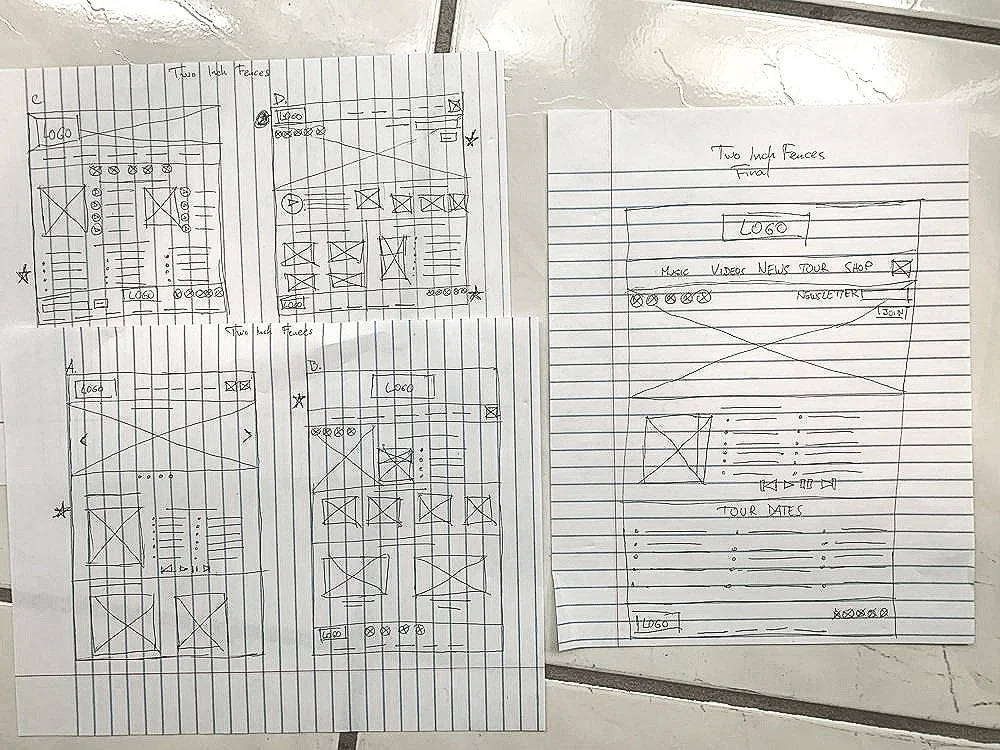 Two Inch Fences
C
LOGO
LOGO
D.
LOGO
LOGO
Two Inch Fences
A.
LOGO
B.
LOGO
LOGO
Two Inch Fences
Final
LOGO
MUSIC VIDEOS NEWS TOUR SHOP
NEWSLETTER
JOIN
TOUR DATES
LOGO